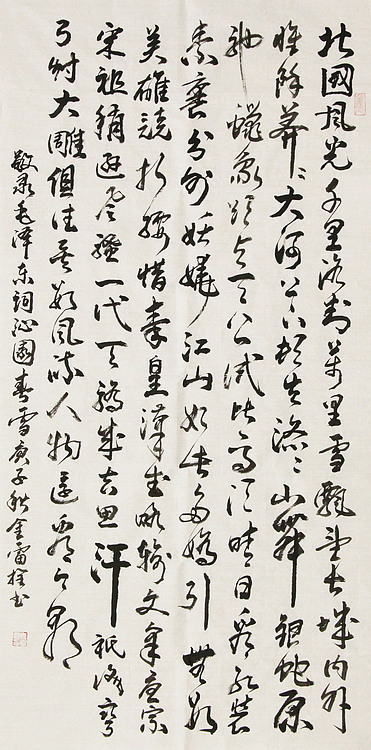 北國風光千里冰封萬里雪飄望長城内外
惟餘莽〻大河上下頓失滔〻山舞銀蛇原
馳蠟象欲與天公試比高須晴日看紅裝
素裹分外妖嬈江山如此多嬌引無數
英雄競折腰惜秦皇漢武略輸文采唐宗
宋祖稍遜風騷一代天驕成吉思汗祇識彎
弓射大雕俱往矣數風流人物還看今朝
敬录毛澤东詞沁園春雪庚子秋金雷书